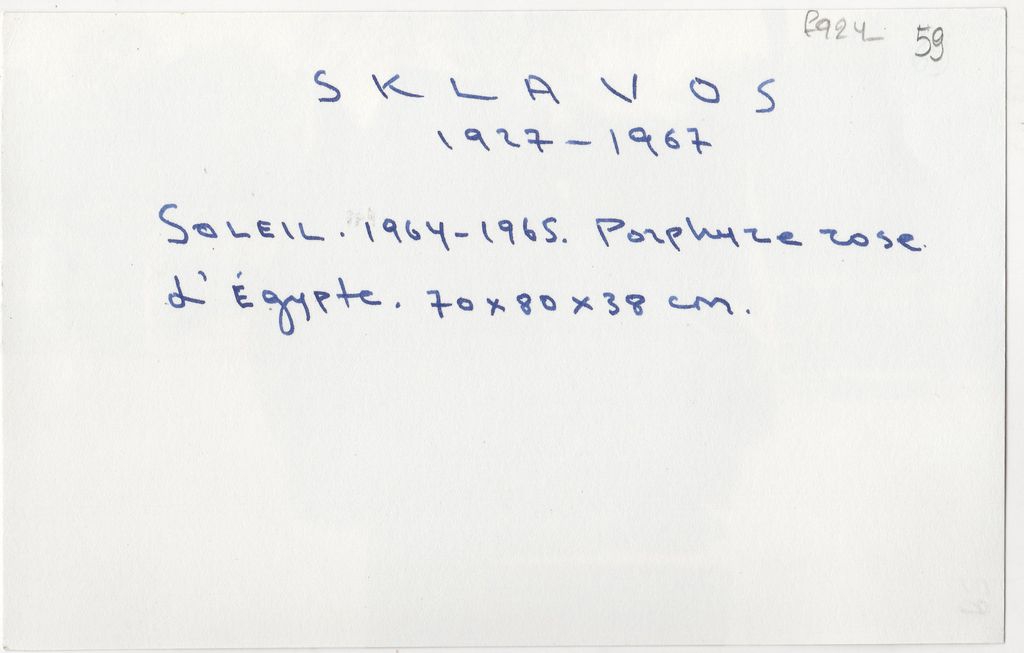 59
SKLAVOS
1927-1967
SOLEIL. 1964-1965. Porphyre rose
d'Égypte. 70x80x38 cm.